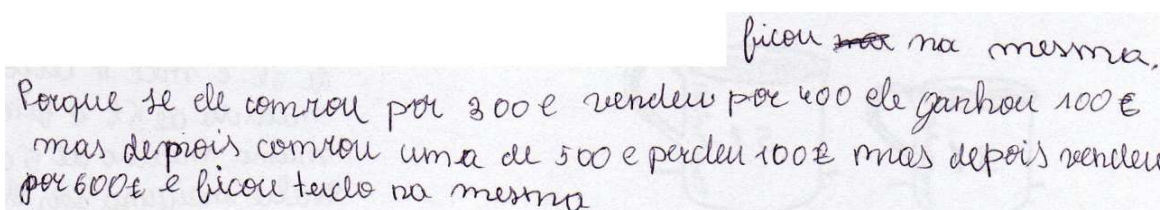 ficou na mesma.
Porque se ele comrou por 300 e vendeu por 400 ele ganhou 100 €
mas depois comrou uma de 500 e perdeu 100 € mas depois vendeu
por 600 € e ficou tudo na mesma